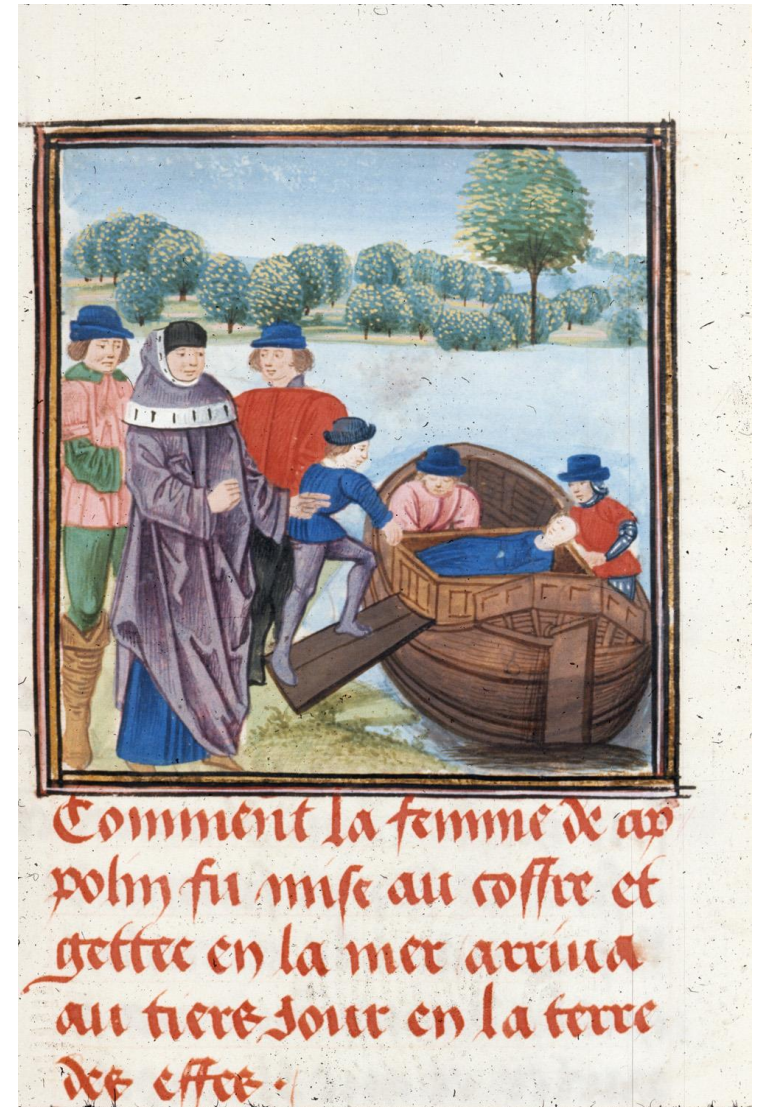 Comment la femme de ap
polin fu mise au coffre et
gettee en la mer arriua
au tiers Jour en la terre
des effes .